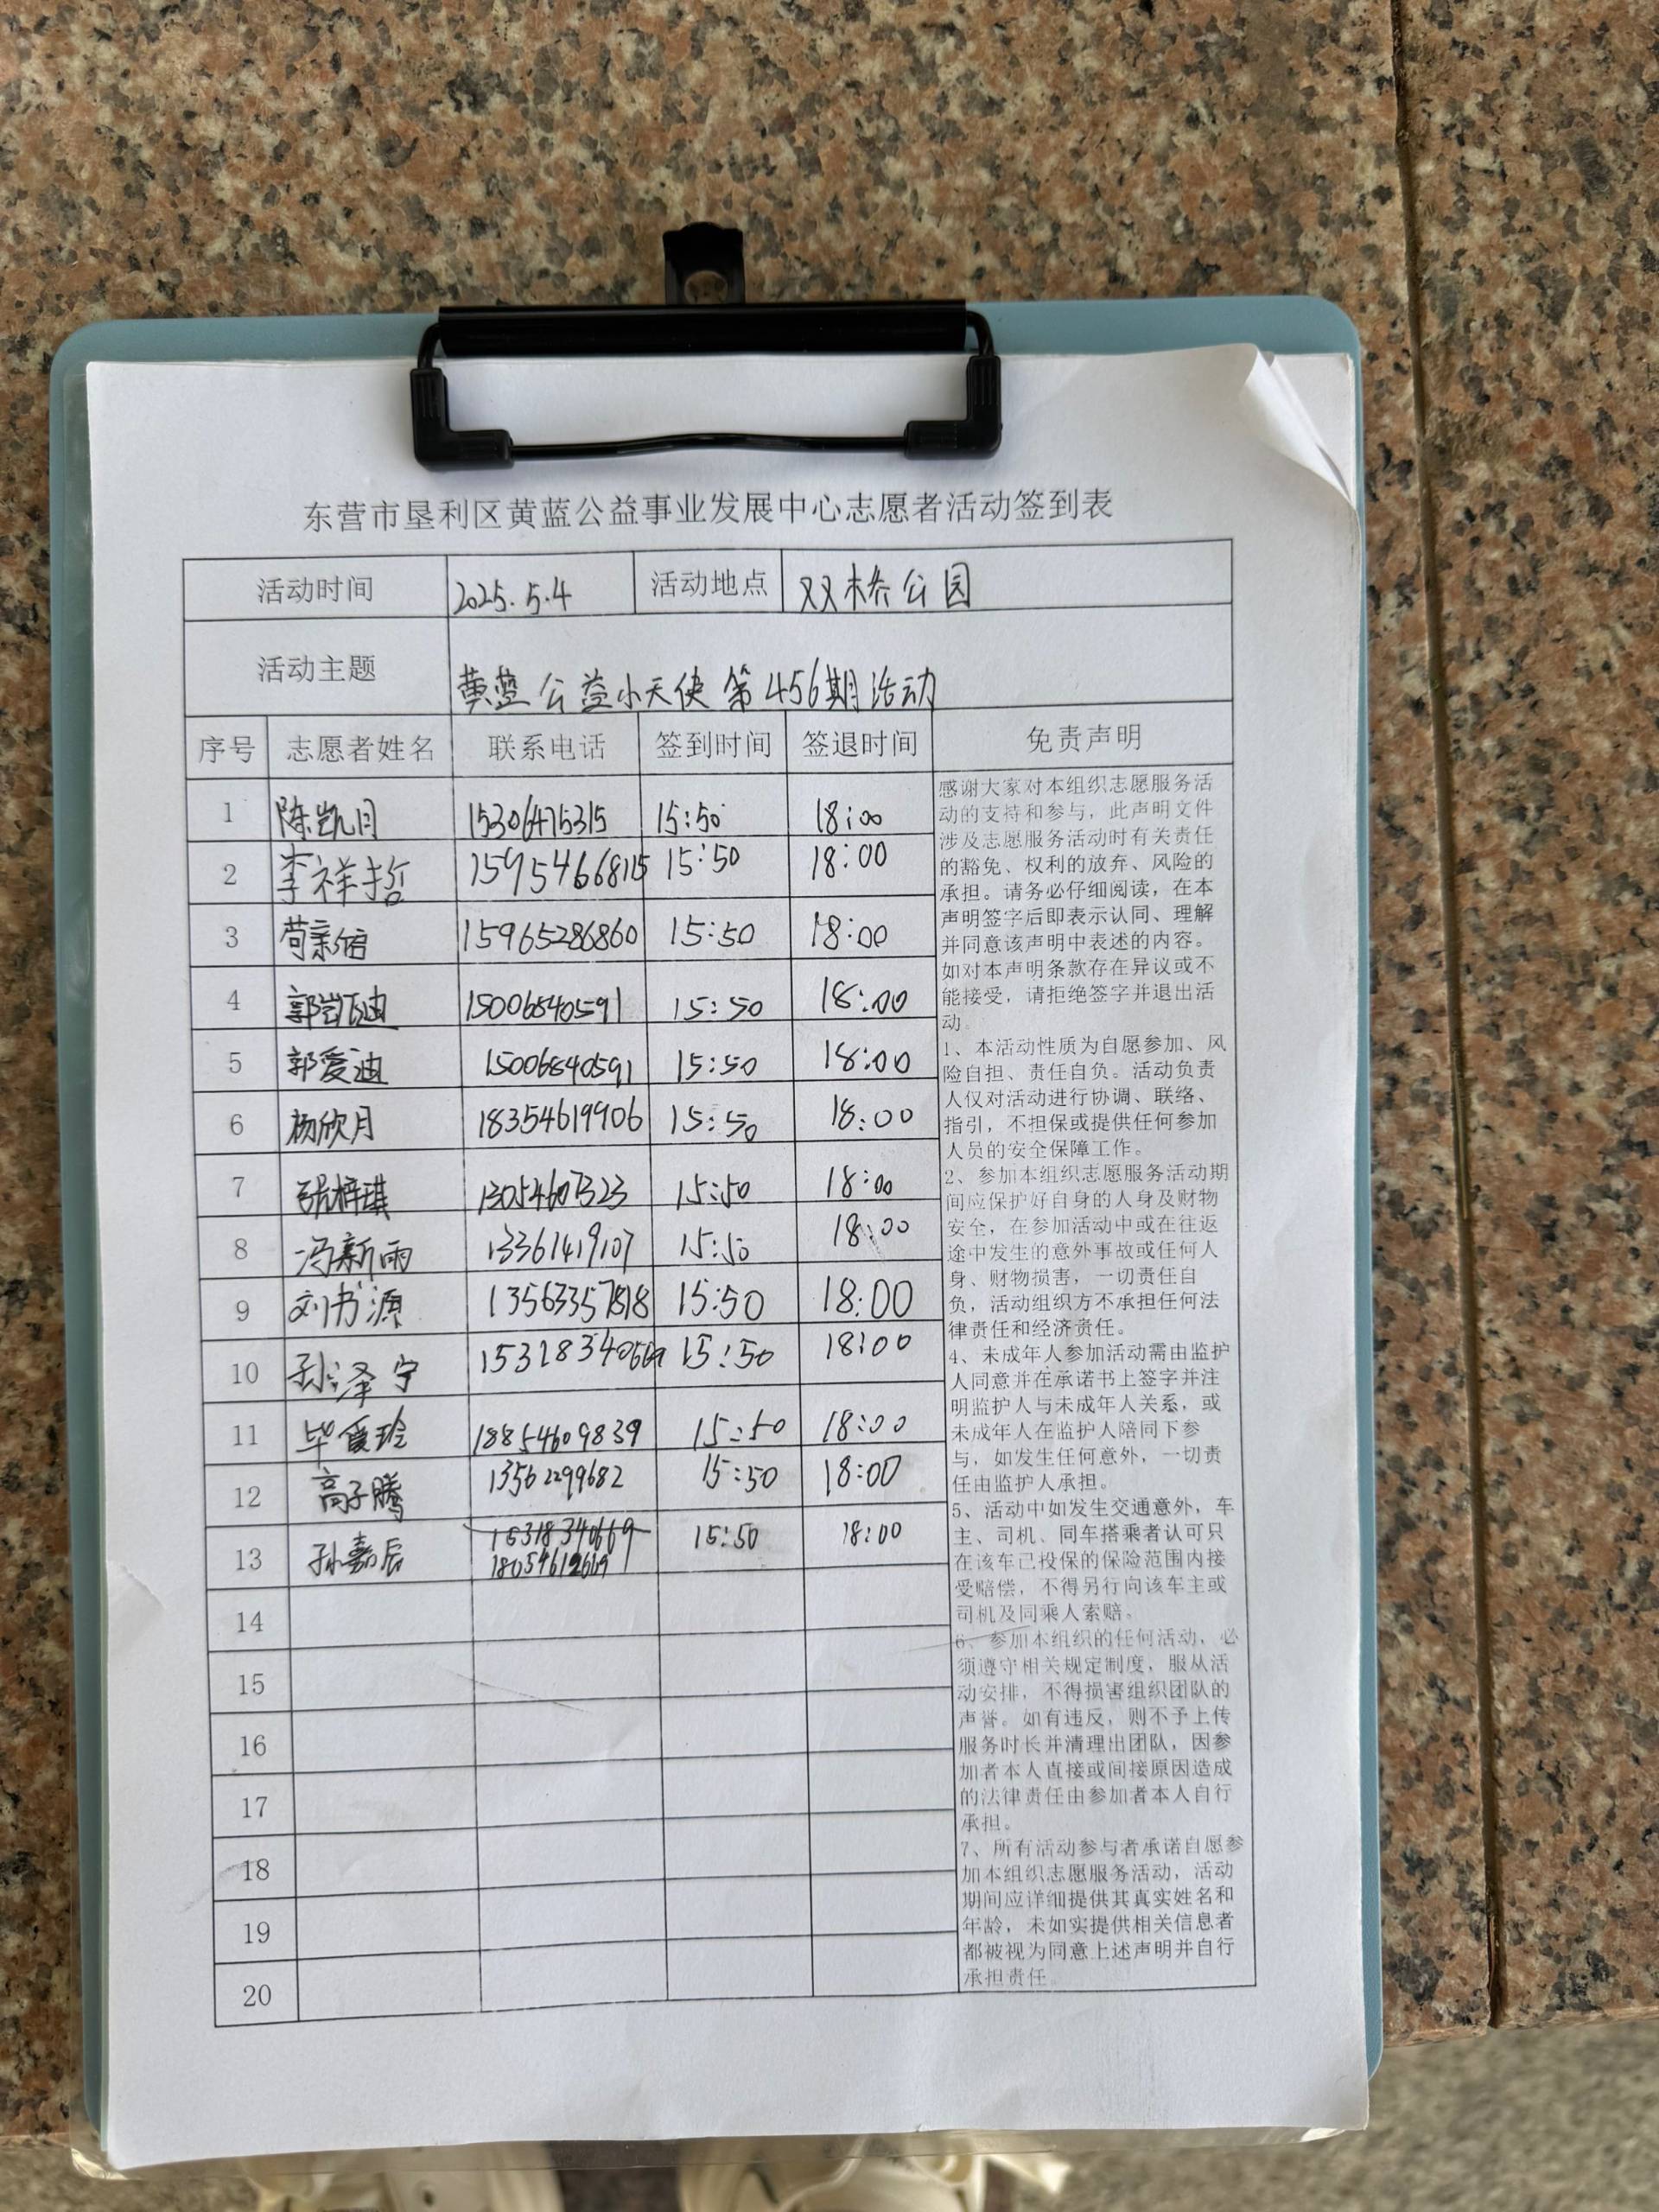 东营市垦利区黄蓝公益事业发展中心志愿者活动签到表
活动时间 2025.5.4 活动地点 双桥公园
活动主题 黄蓝公益小天使第456期活动
序号 志愿者姓名 联系电话 签到时间 签退时间 免责声明
1 陈凯月 15306475315 15:50 18:00
2 李祥哲 15954668115 15:50 18:00
3 苟亲缩 15965286860 15:50 18:00
4 郭凯迪 15006840591 15:50 18:00
5 郭爱迪 15006840591 15:50 18:00
6 杨欣月 18354619906 15:50 18:00
7 张梓琪 13054607323 15:50 18:00
8 冯新雨 13361419107 15:50 18:00
9 刘书源 13563357818 15:50 18:00
10 孙泽宁 15318340669 15:50 18:00
11 毕愛玲 18854609839 15:50 18:00
12 高子腾 13562299682 15:50 18:00
13 孙嘉辰 15318340669 15:50 18:00
18054612669
14
15
16
17
18
19
20
感谢大家对本组织志愿服务活
动的支持和参与，此声明文件
涉及志愿服务活动时有关责任
的豁免、权利的放弃、风险的
承担。请务必仔细阅读，在本
声明签字后即表示认同、理解
并同意该声明中表述的内容。
如对本声明条款存在异议或不
能接受，请拒绝签字并退出活
动。
1、本活动性质为自愿参加、风
险自担、责任自负。活动负责
人仅对活动进行协调、联络、
指引，不担保或提供任何参加
人员的安全保障工作。
2、参加本组织志愿服务活动期
间应保护好自身的人身及财物
安全，在参加活动中或在往返
途中发生的意外事故或任何人
身、财物损害，一切责任自
负，活动组织方不承担任何法
律责任和经济责任。
4、未成年人参加活动需由监护
人同意并在承诺书上签字并注
明监护人与未成年人关系，或
未成年人在监护人陪同下参
与，如发生任何意外，一切责
任由监护人承担。
5、活动中如发生交通意外，车
主、司机、同车搭乘者认可只
在该车已投保的保险范围内接
受赔偿，不得另行向该车主或
司机及同乘人索赔。
6、参加本组织的任何活动，必
须遵守相关规定制度，服从活
动安排，不得损害组织团队的
声誉。如有违反，则不予上传
服务时长并清理出团队，因参
加者本人直接或间接原因造成
的法律责任由参加者本人自行
承担。
7、所有活动参与者承诺自愿参
加本组织志愿服务活动，活动
期间应详细提供其真实姓名和
年龄，未如实提供相关信息者
都被视为同意上述声明并自行
承担责任